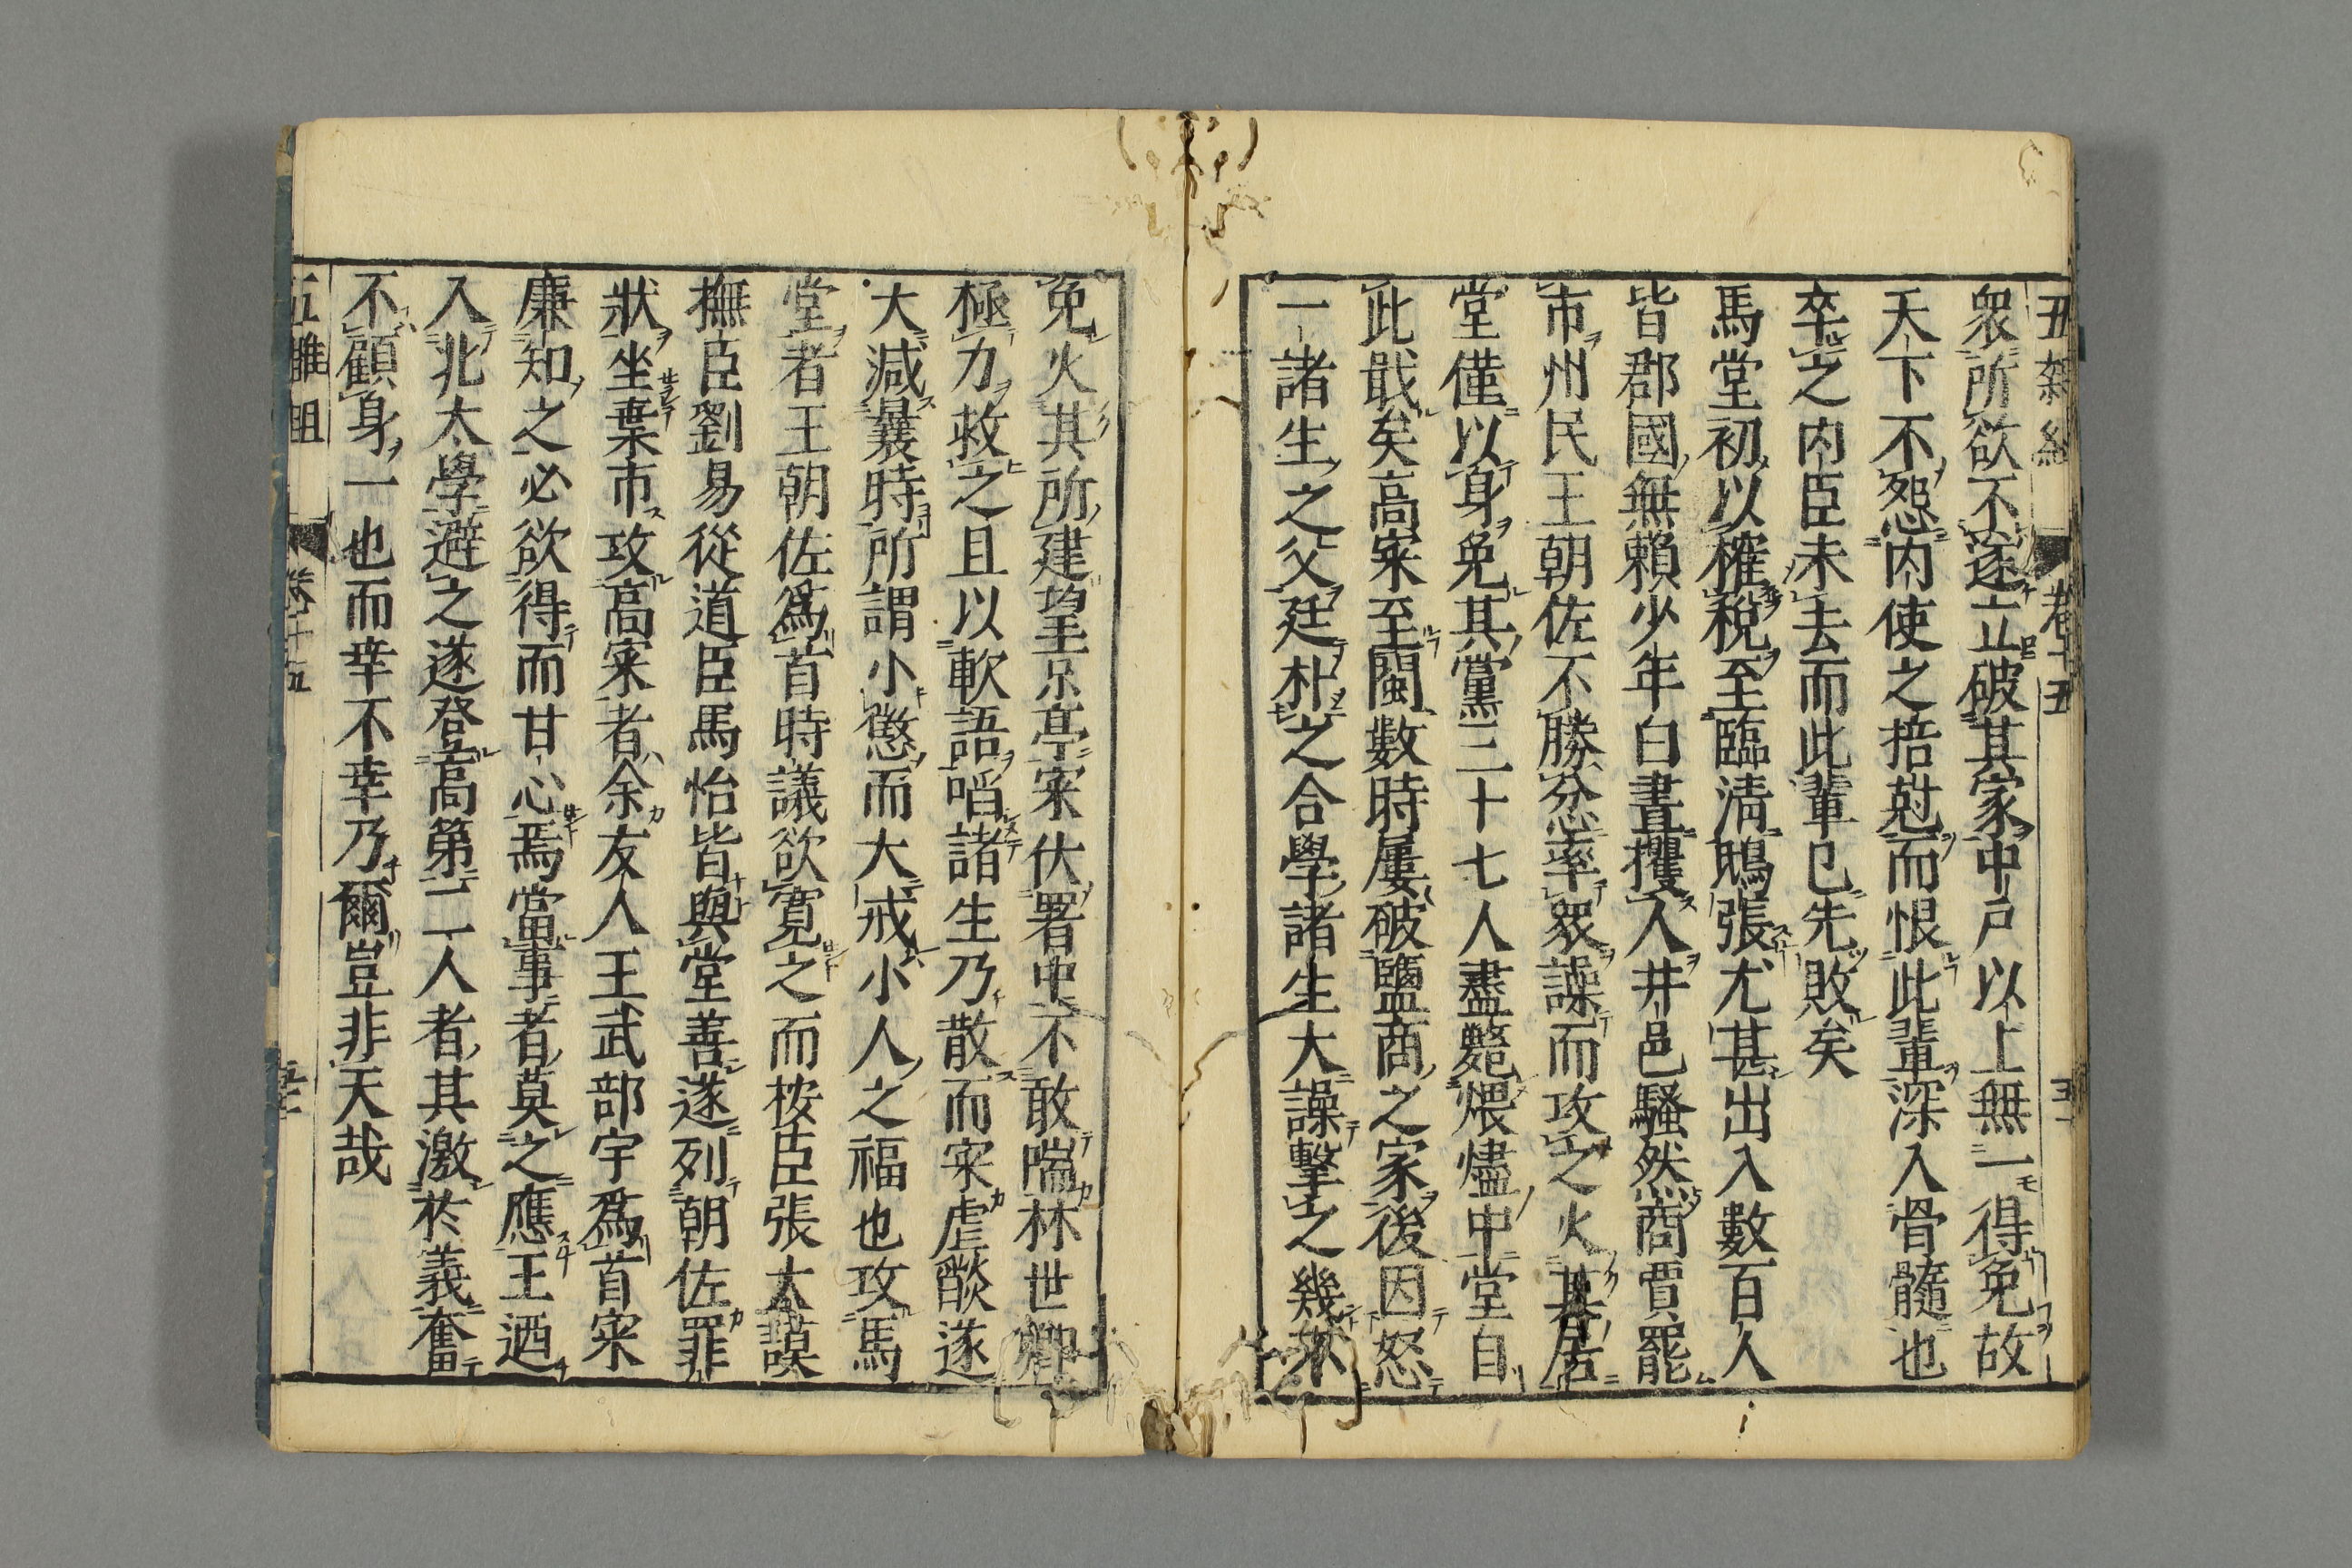 五雜組 卷十五 五十一
衆所欲不遂立破其家中戸以上無一得免故
天下不怨内使之掊尅而恨此輩深入骨髓也
卒之内臣未去而此輩已先敗矣
馬堂初以榷稅至臨淸鴟張尤甚出入數百人
皆郡國無賴少年白晝攫人井邑騷然商賈罷
市州民王朝佐不勝忿率衆譟而攻之火其居
堂僅以身免其黨三十七人盡斃煨燼中堂自
此戢矣高寀至閩數時屢破鹽商之家後因怒
一諸生之父廷朴之合學諸生大譟擊之幾不
免火其所建望京亭寀伏署中不敢喘林世卿
極力救之且以軟語啗諸生乃散而寀虐燄遂
大減曩時所謂小懲而大戒小人之福也攻馬
堂者王朝佐爲首時議欲寬之而按臣張大謨
撫臣劉易從道臣馬怡皆與堂善遂列朝佐罪
狀坐棄市攻高寀者余友人王武部宇爲首寀
廉知之必欲得而甘心焉當事者莫之應王迺
入北太學避之遂登高第二人者其激於義奮
不顧身一也而幸不幸乃爾豈非天哉
五雜組 卷十五